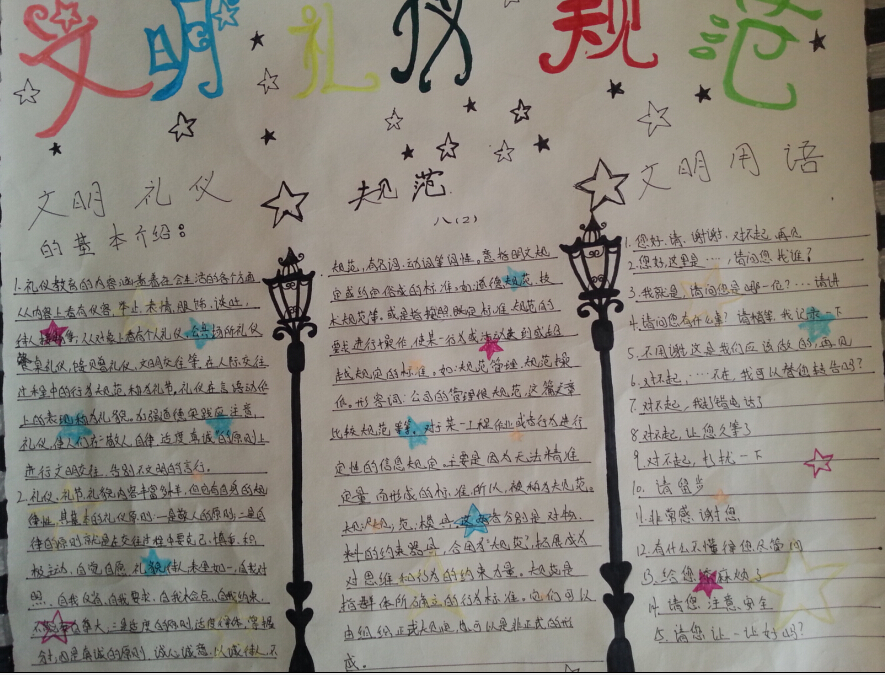 文明礼仪规范
文明礼仪
的基本介绍：
1.礼仪教育的内容涵盖着社会生活的各个方面
从内容上看有仪容、举止、表情、服饰、谈吐、
待人接物等，从对象上看有个人礼仪，公共场所礼仪
餐桌礼仪，馈赠礼仪，文明交往等，在人际交往
过程中的行为规范称为礼节。礼仪在言语动作
上的表现称为礼貌。加强道德实践应注意，
礼仪，使人们在"敬人、自律、适度、真诚的原则上
进行文明交往，告别不文明的言行。
2.礼仪、礼节、礼貌内容丰富多样，但它有自身的规
律性，其基本的礼仪原则：一是敬人的原则；二是自
律的原则，就是在交往过程中要克己、慎重、积
极主动、自觉自愿、礼貌待人、表里如一，自我对
照，自我反省，自我要求，自我检点，自我约束，
不能妄自尊大，三是适度的原则，适度得体，掌握
分寸；四是真诚的原则，诚心诚意，以诚待人，不
规范
八（2）
规范，有名词、动词等词性，意指明文规
定或约定俗成的标准，如：道德规范、技
术规范等。或是指按照既定标准、规范的
要求进行操作，使某一行为或活动达到或超
越规定的标准，如：规范管理、规范操
作。形容词：公司的管理很规范，这篇文章
比较规范等。对于某一工程作业或者行为进行
定性的信息规定。主要是因为无法精准
定量而形成的标准，所以，被称为规范。
规：尺规；范：模具。这两者分别是对物、
料的约束器具，合用为"规范"，拓展成为
对思维和行为的约束力量。规范是
指群体所确立的行为标准。它们可以
由组织正式规定，也可以是非正式的形
成。
文明用语
1.您好、请、谢谢、对不起、再见
2.您好，这里是…，请问您找谁？
3.我就是，请问您是哪一位？…请讲
4.请问您有什么事？请稍等，我记录一下
5.不用谢，这是我们应该做的，再见
6.对不起，…不在，我可以替您转告吗？
7.对不起，我打错电话了
8.对不起，让您久等了
9.对不起，打扰一下
10.请留步
11.非常感谢您
12.有什么不懂得您尽管问
13.给您添麻烦了
14.请您注意安全
15.请您让一让好吗？